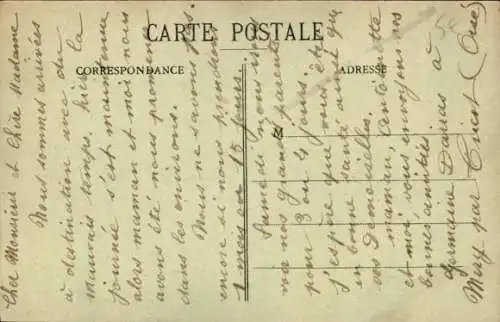 CARTE POSTALE
CORRESPONDANCE
ADRESSE
Cher Monsieur et Chère Madame
Nous sommes arrivées
à destination avec du
mauvais temps. hier la
journée s'est maintenue
alors maman et moi nous
avons été nous promener
dans les environs.
Nous ne savons pas
encore si nous prendrons
1 mois ou 15 jours.
Samedi nous irons
voir nos grands parents
pour 3 ou 4 jours.
J'espère que vous êtes
en bonne santé ainsi que
vos Demoiselles.
maman, Antoinette
et moi vous envoyons nos
bonnes amitiés.
Germaine Darras à
Mery par